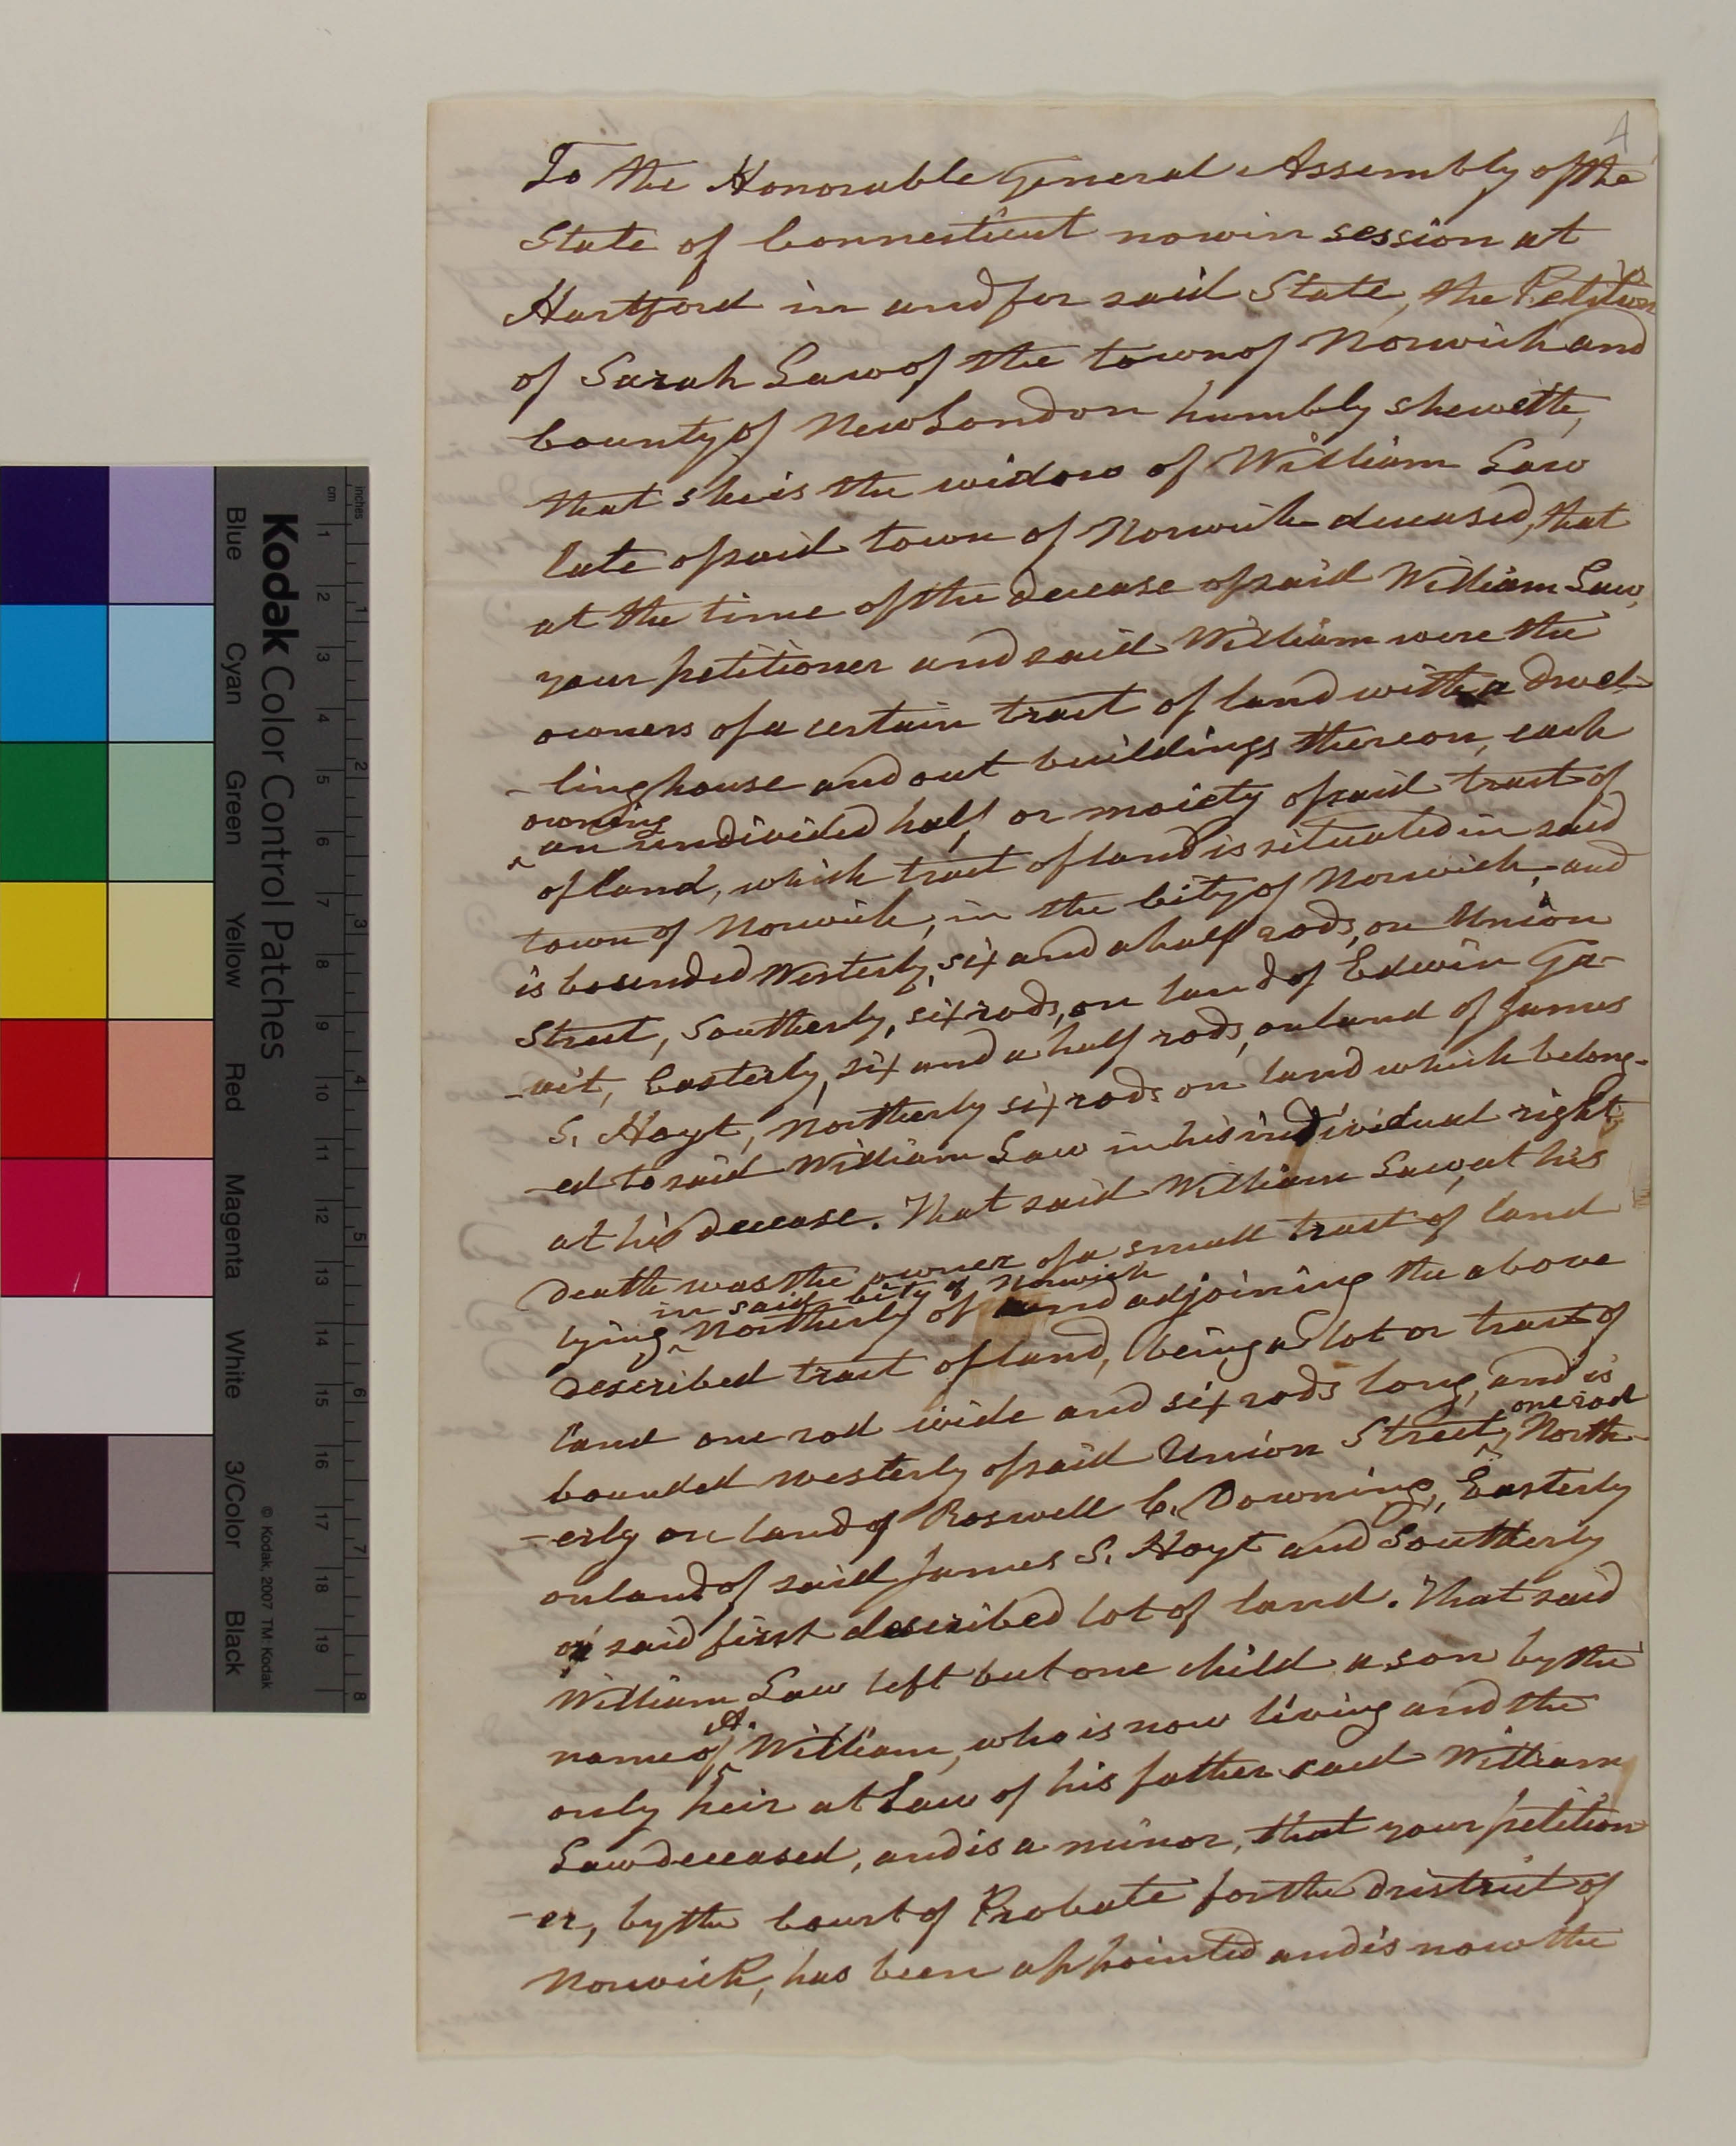 4
To the Honorable General Assembly of the
State of Connecticut now in session at
Hartford in and for said State, the Petition
of Sarah Law of the town of Norwich and
County of New London humbly sheweth,
that she is the widow of William Law
late of said town of Norwich deceased, that
at the time of the decease of said William Law,
your petitioner and said William were the
owners of a certain tract of land with a dwel-
-ling house and out buildings thereon, each
owning
an undivided half or moiety of said tract of
of land, which tract of land is situated in said
town of Norwich, in the City of Norwich, and
is bounded Westerly, six and a half rods, on Union
Street, Southerly, six rods, on land of Edwin Ga-
-vit, Easterly, six and a half rods, on land of James
S. Hoyt, Northerly six rods on land which belong-
-ed to said William Law in his individual right
at his decease. That said William Law, at his
death was the owner of a small tract of land
in said City of Norwich
lying Northerly of and adjoining the above
described tract of land, being a lot or tract of
land one rod wide and six rods long, and is
one rod
bounded westerly of said Union Street, North-
-erly on land of Roswell C. Downing, Easterly
on land of said James S. Hoyt and Southerly
on said first described lot of land. That said
William Law left but one child a son by the
A.
name of William, who is now living and the
only heir at Law of his father said William
Law deceased, and is a minor, that your petition
-er, by the Court of Probate for the district of
Norwich, has been appointed and is now the
Kodak Color Control Patches
Blue Cyan Green Yellow Red Magenta White 3/Color Black
© Kodak, 2007 TM: Kodak
inches 1 2 3 4 5 6 7 8
cm 1 2 3 4 5 6 7 8 9 10 11 12 13 14 15 16 17 18 19